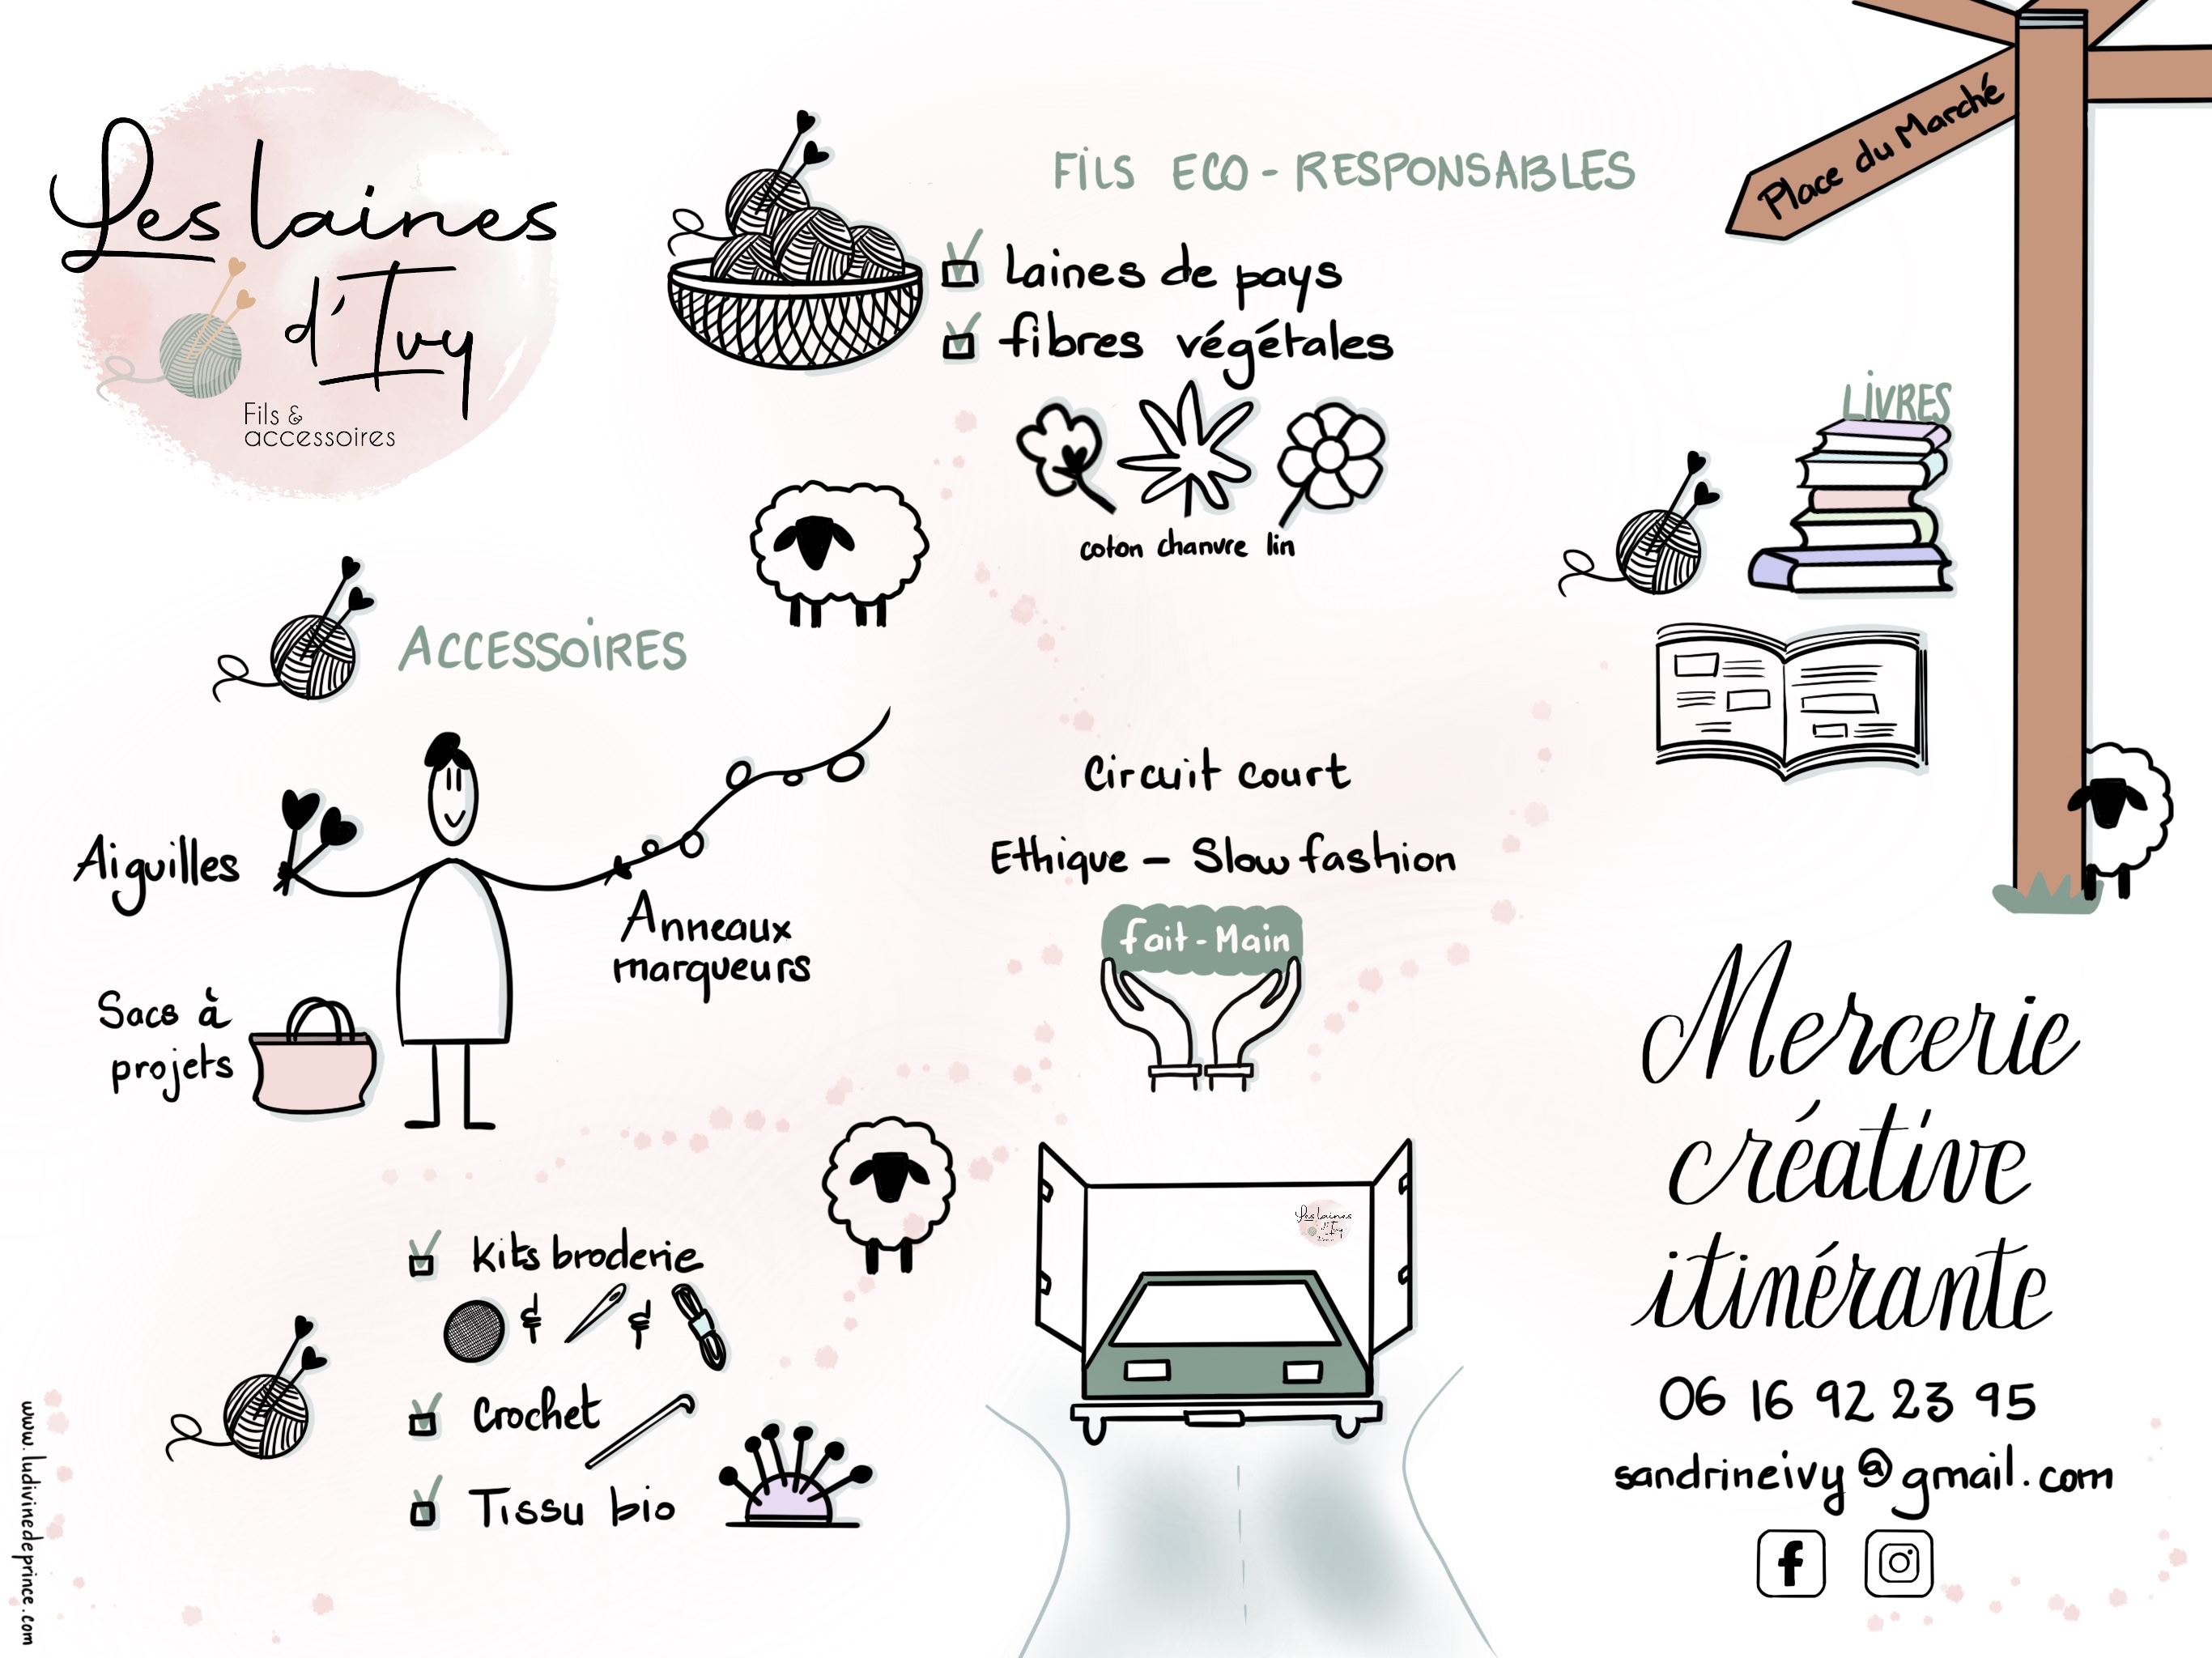 Les laines
d'Ivy
Fils &
accessoires
FILS ECO-RESPONSABLES
laines de pays
fibres végétales
coton chanvre lin
Place du Marché
LIVRES
ACCESSOIRES
Aiguilles
Anneaux
marqueurs
Sacs à
projets
Circuit court
Ethique - Slow fashion
fait-Main
Kits broderie
& &
Crochet
Tissu bio
Les laines
d'Ivy
Mercerie
créative
itinérante
06 16 92 23 95
sandrineivy@gmail.com
f
www.ludivinedeprince.com